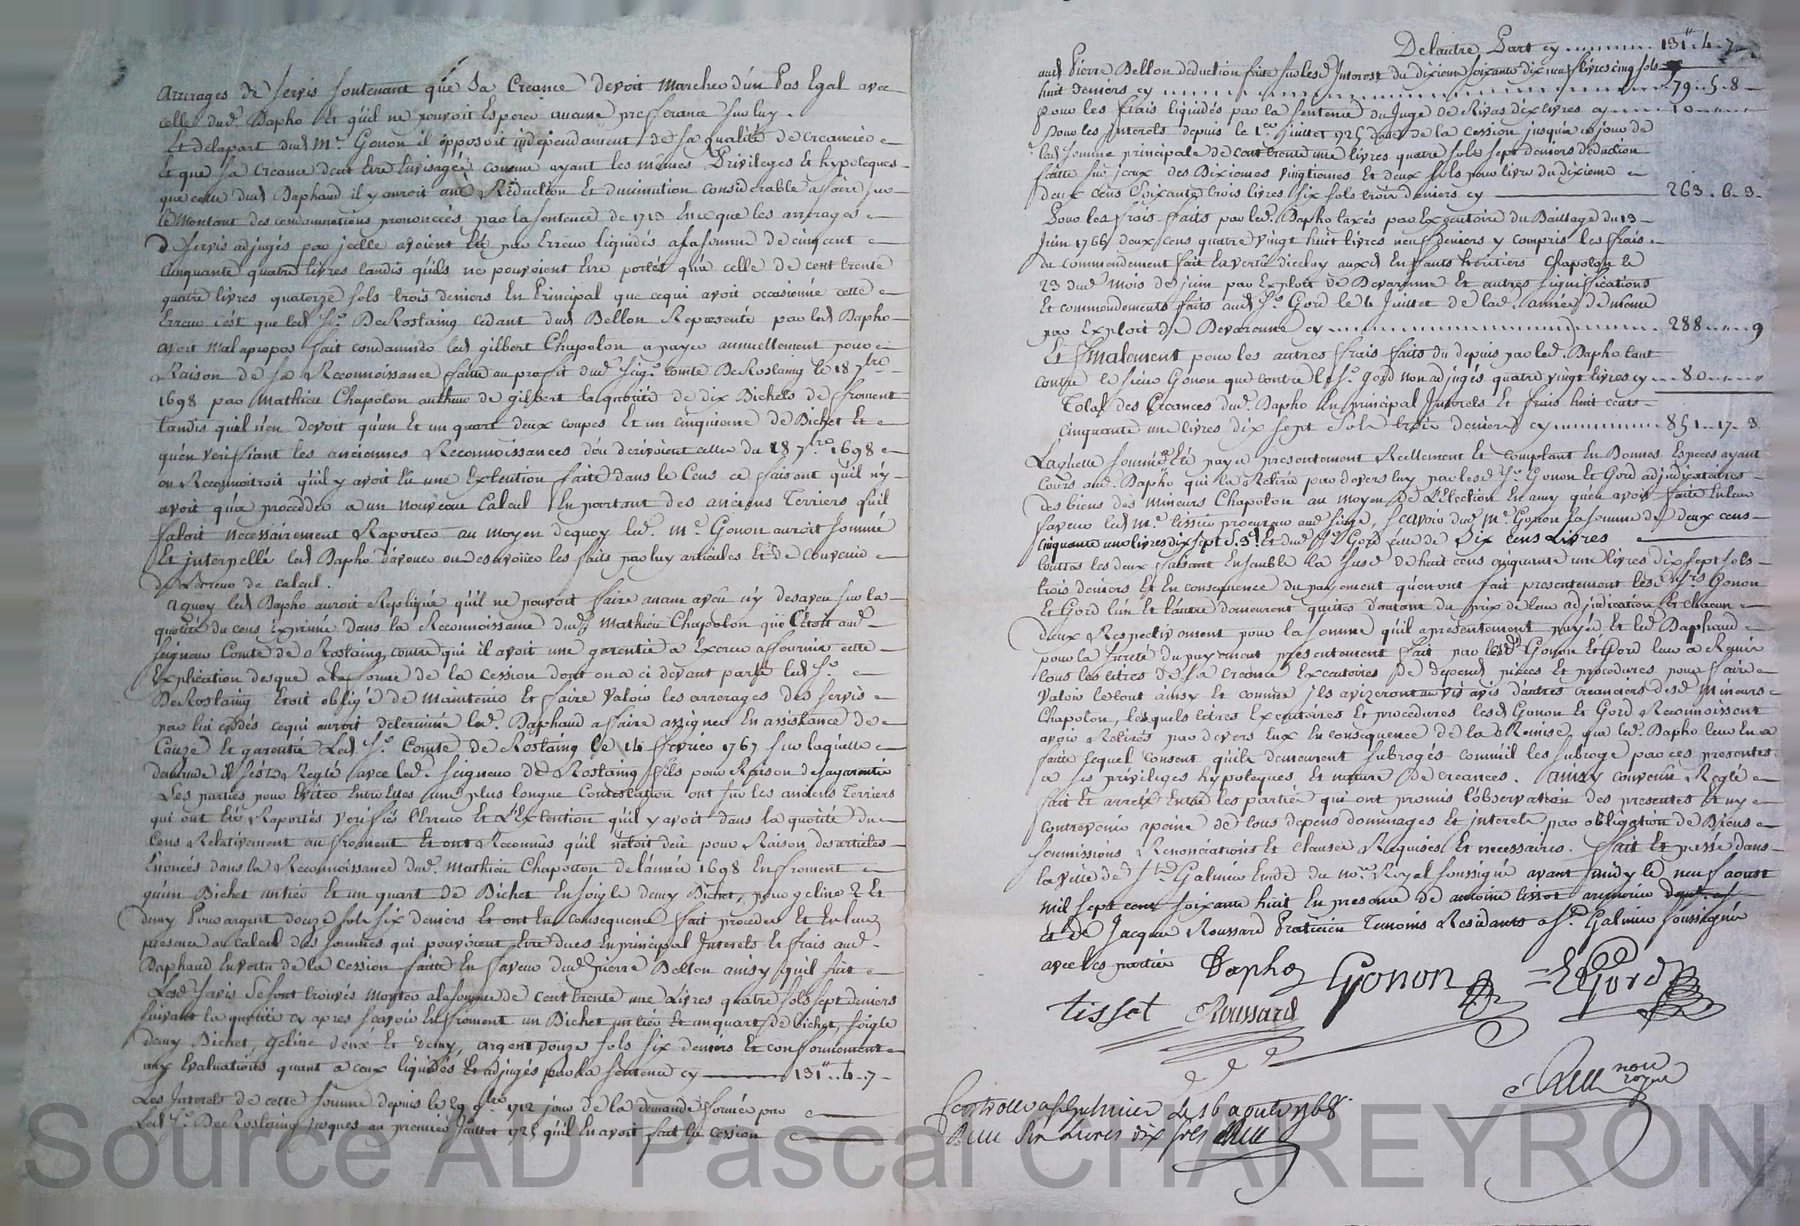 arrerages de servis soutenant que sa Creance devoit Marcher d'un Pas Egal avec
celle dud. Dapho Et qu'il ne pouvoit Esperer aucune prefferance sur luy.
Et delapart dud Me. Gonon il opposoit independament de sa qualité de creancier
Et que sa Creance dent Etre Envisagée comme ayant les mêmes Privileges Et hypoteques
que celle dud Daphaud il y auroit une Réduction Et diminution considerable a faire sur
le Montant des condamnations prononcées par la sentence de 1713 En ce que les arrerages
de servis adjugés par jcelle avoient Eté par Erreur liquidés a la somme de cinq cent
cinquante quatre livres tandis qu'ils ne pouvoient Etre portés qu'a celle de cent trente
quatre livres quatorze sols trois deniers En Principal que ce qui avoit occasionné cette
Erreur c'est que led Sr. De Rostaing cedant dud Bellon Representé par led Dapho
avoit mal apropos fait condamner led gilbert Chapolon a payer annuellement pour
Raison de sa Reconnoissance faitte au proffit dud. Seigr. Comte De Rostaing le 18 7bre
1698 par Mathieu Chapolon autheur de gilbert la quotité de dix Bichets de froment
tandis qu'il n'en devoit qu'un Et un quart deux coupes Et un cinquieme de Bichet Et
qu'en veriffiant les anciennes Reconnoissances d'ou derivoient celle du 18 7bre 1698
on Reconnoitroit qu'il y avoit Eté une Extention faite dans le Cens ce faisant qu'il n'y
avoit qu'a proceder a un nouveau Calcul En partant des anciens Terriers qu'il
faloit necessairement Raporter au moyen dequoy led. Me. Gonon auroit sommé
Et interpellé led Dapho d'avouer ou desavoüer les faits par luy articules Et de convenir
de L'Erreur de calcul.
Aquoy led Dapho auroit Repliqué qu'il ne pouvoit faire aucun aveü n'y desaveu sur la
quotité du cens Exprimée dans la Reconnoissance dud. Mathieu Chapolon que C'étoit aud.
Seigneur Comte de Rostaing contre qui il avoit une garentie a Exercer a fournir cette
Explication desque a la forme de la cession dont on a ci devant parlé led Sr.
De Rostaing Etoit obligé de Maintenir Et faire valoir les arrerages des servis
par lui cedés ce qui auroit determiné led. Daphaud a faire assigner En assistance de
Cauze Et garentie Led Sr. Comte de Rostaing le 14 fevrier 1767 sur laquelle
demande il s'est Reglé avec led. Seigneur de Rostaing fils pour Raison de sa garentie
Les parties pour Eviter Entre Elles une plus longue Contestation ont sur les anciens Terriers
qui ont Eté Raportés veriffié l'Erreur Et L'Extention qu'il y avoit dans la quotité du
Cens Relativement au froment Et ont Reconnus qu'il n'etoit deü pour Raison des articles
Enoncés dans la Reconnoissance dud. Mathieu Chapolon de l'année 1698 En froment
qu'un Bichet entier Et un quart de Bichet En soigle demy Bichet, pour geline 2 Et
demy Pour argent douze sols six deniers Et ont En consequence fait proceder Et En leur
presence au Calcul des sommes qui pouvoient Etre dues En principal Interets Et frais aud.
Daphaud En vertu de la Cession faitte En faveur dud Pierre Bellon ainsy qu'il suit
Lesd. servis Se sont trouvés monter a la somme de Cent trente une Livres quatre sols sept deniers
suivant la quotité cy apres scavoir En froment un Bichet entier Et un quart de bichet, soigle
demy Bichet, geline deux Et demy, argent douze sols six deniers Et conformement
aux Evaluations quant a ceux liquidés Et adjugés par la sentence cy 131tt.. 4.. 7
Les Interets de cette somme depuis le 29 9bre 1712 jour de la demande formée par
Led Sr. De Rostaing jusques au premier Juillet 1725 qu'il En avoit fait la cession
De l'autre Part cy 131tt.. 4.. 7
aud Pierre Bellon deduction faite sur lesd Interest du dixieme soixante dix neuf livres cinq sols
huit deniers cy 79.. 5.. 8
Pour les frais liquidés par la sentence du Juge de Rivas dix livres cy 10
Pour les Interets depuis le 1er Juillet 1725 datte de la Cession jusqu'a ce jour de
lad somme principale de Cent trente une livres quatre sols sept deniers deduction
faitte sur jceux des Dixiemes vingtiemes Et deux sols pour livre du dixieme
deux cens Soixante trois livres six sols trois deniers cy 263.. 6.. 3
Pour les frais faits par led. Dapho taxés par Executoire du Bailliage du 13
Juin 1766 deux cens quatre vingt huit livres neuf deniers y compris les frais
du commendement fait En vertu d'iceluy auxd Enfants heritiers Chapolon le
23 dud mois de juin par Exploit de Devarenne Et autres significations
Et commendements faits aud Sr. Gord le 6 Juillet de lad. année de même
par Exploit de Devarenne cy 288.. .. 9
Et finalement pour les autres frais faits du depuis par led. Dapho tant
contre le sieur Gonon que contre le Sr. Gord non adjugés quatre vingt livres cy 80
Total des Creances dud. Dapho En principal Interets Et frais huit cents
cinquante une livres dix sept Sols trois deniers cy 851.. 17.. 3
Laquelle somme a Eté payée presentement Reellement Et comptant En Bonnes Especes ayant
Cours aud. Dapho qui l'a Retirée par devers luy par lesd Srs Gonon Et Gord adjudicataires
des biens des mineurs Chapolon au moyen de L'Election En amy qu'en avoit faite En leur
faveur led Me. tissier procureur aud siege, scavoir dud Me. Gonon la somme de deux cens
cinquante une livres dix sept s. 3d. Et dud Sr. Gord celle de Six Cens Livres
touttes les deux faisant Ensemble la susd de huit cens cinquante une livres dix sept sols
trois deniers Et En consequence du payement qu'en ont fait presentement lesd Srs Gonon
Et Gord l'un Et l'autre demeurent quittes d'autant du prix de leur adjudication Et chacun
d'eux Respectivement pour la somme qu'il a presentement payée Et led Daphaud
pour la sureté du payement presentement fait par lesd Gonon Et Gord leur a Remis
tous les titres de sa creance Executoires de depens pieces Et procedures pour faire
valoir le tout ainsy Et comme ils aviseront au vis avis d'autres creanciers desd Mineurs
Chapolon, lesquels titres Executoires Et procedures lesd Gonon Et Gord Reconnoissent
avoir Retirés par devers Eux En consequence de la Remise que led. Dapho leur En a
faitte lequel Consent qu'ils demeurent subrogés comme il les subroge par ces presentes
a ses privileges hypoteques Et nature de creances. Ainsy convenü Reglé
fait Et arreté Entre les parties qui ont promis l'observation des presentes Et n'y
contrevenir a peine de tous depens dommages Et interets par obligation de Biens
soumissions Renonciations Et clauses Requises Et necessaires. Fait Et passé dans
la ville de St. Galmier Etude du nore. Royal soussigné avant midy le neuf aoust
mil sept cent soixante huit En presence de antoine tissot armurier
et de Jacque Roussard Praticien Temoins Residents a St. Galmier soussignés
avec les parties Dapho Gonon E Gord
tissot Roussard
nore royal
Controllé a St Galmier le 16 aoust 1768
Recu six Livres dix sols
Source AD Pascal CHAREYRON